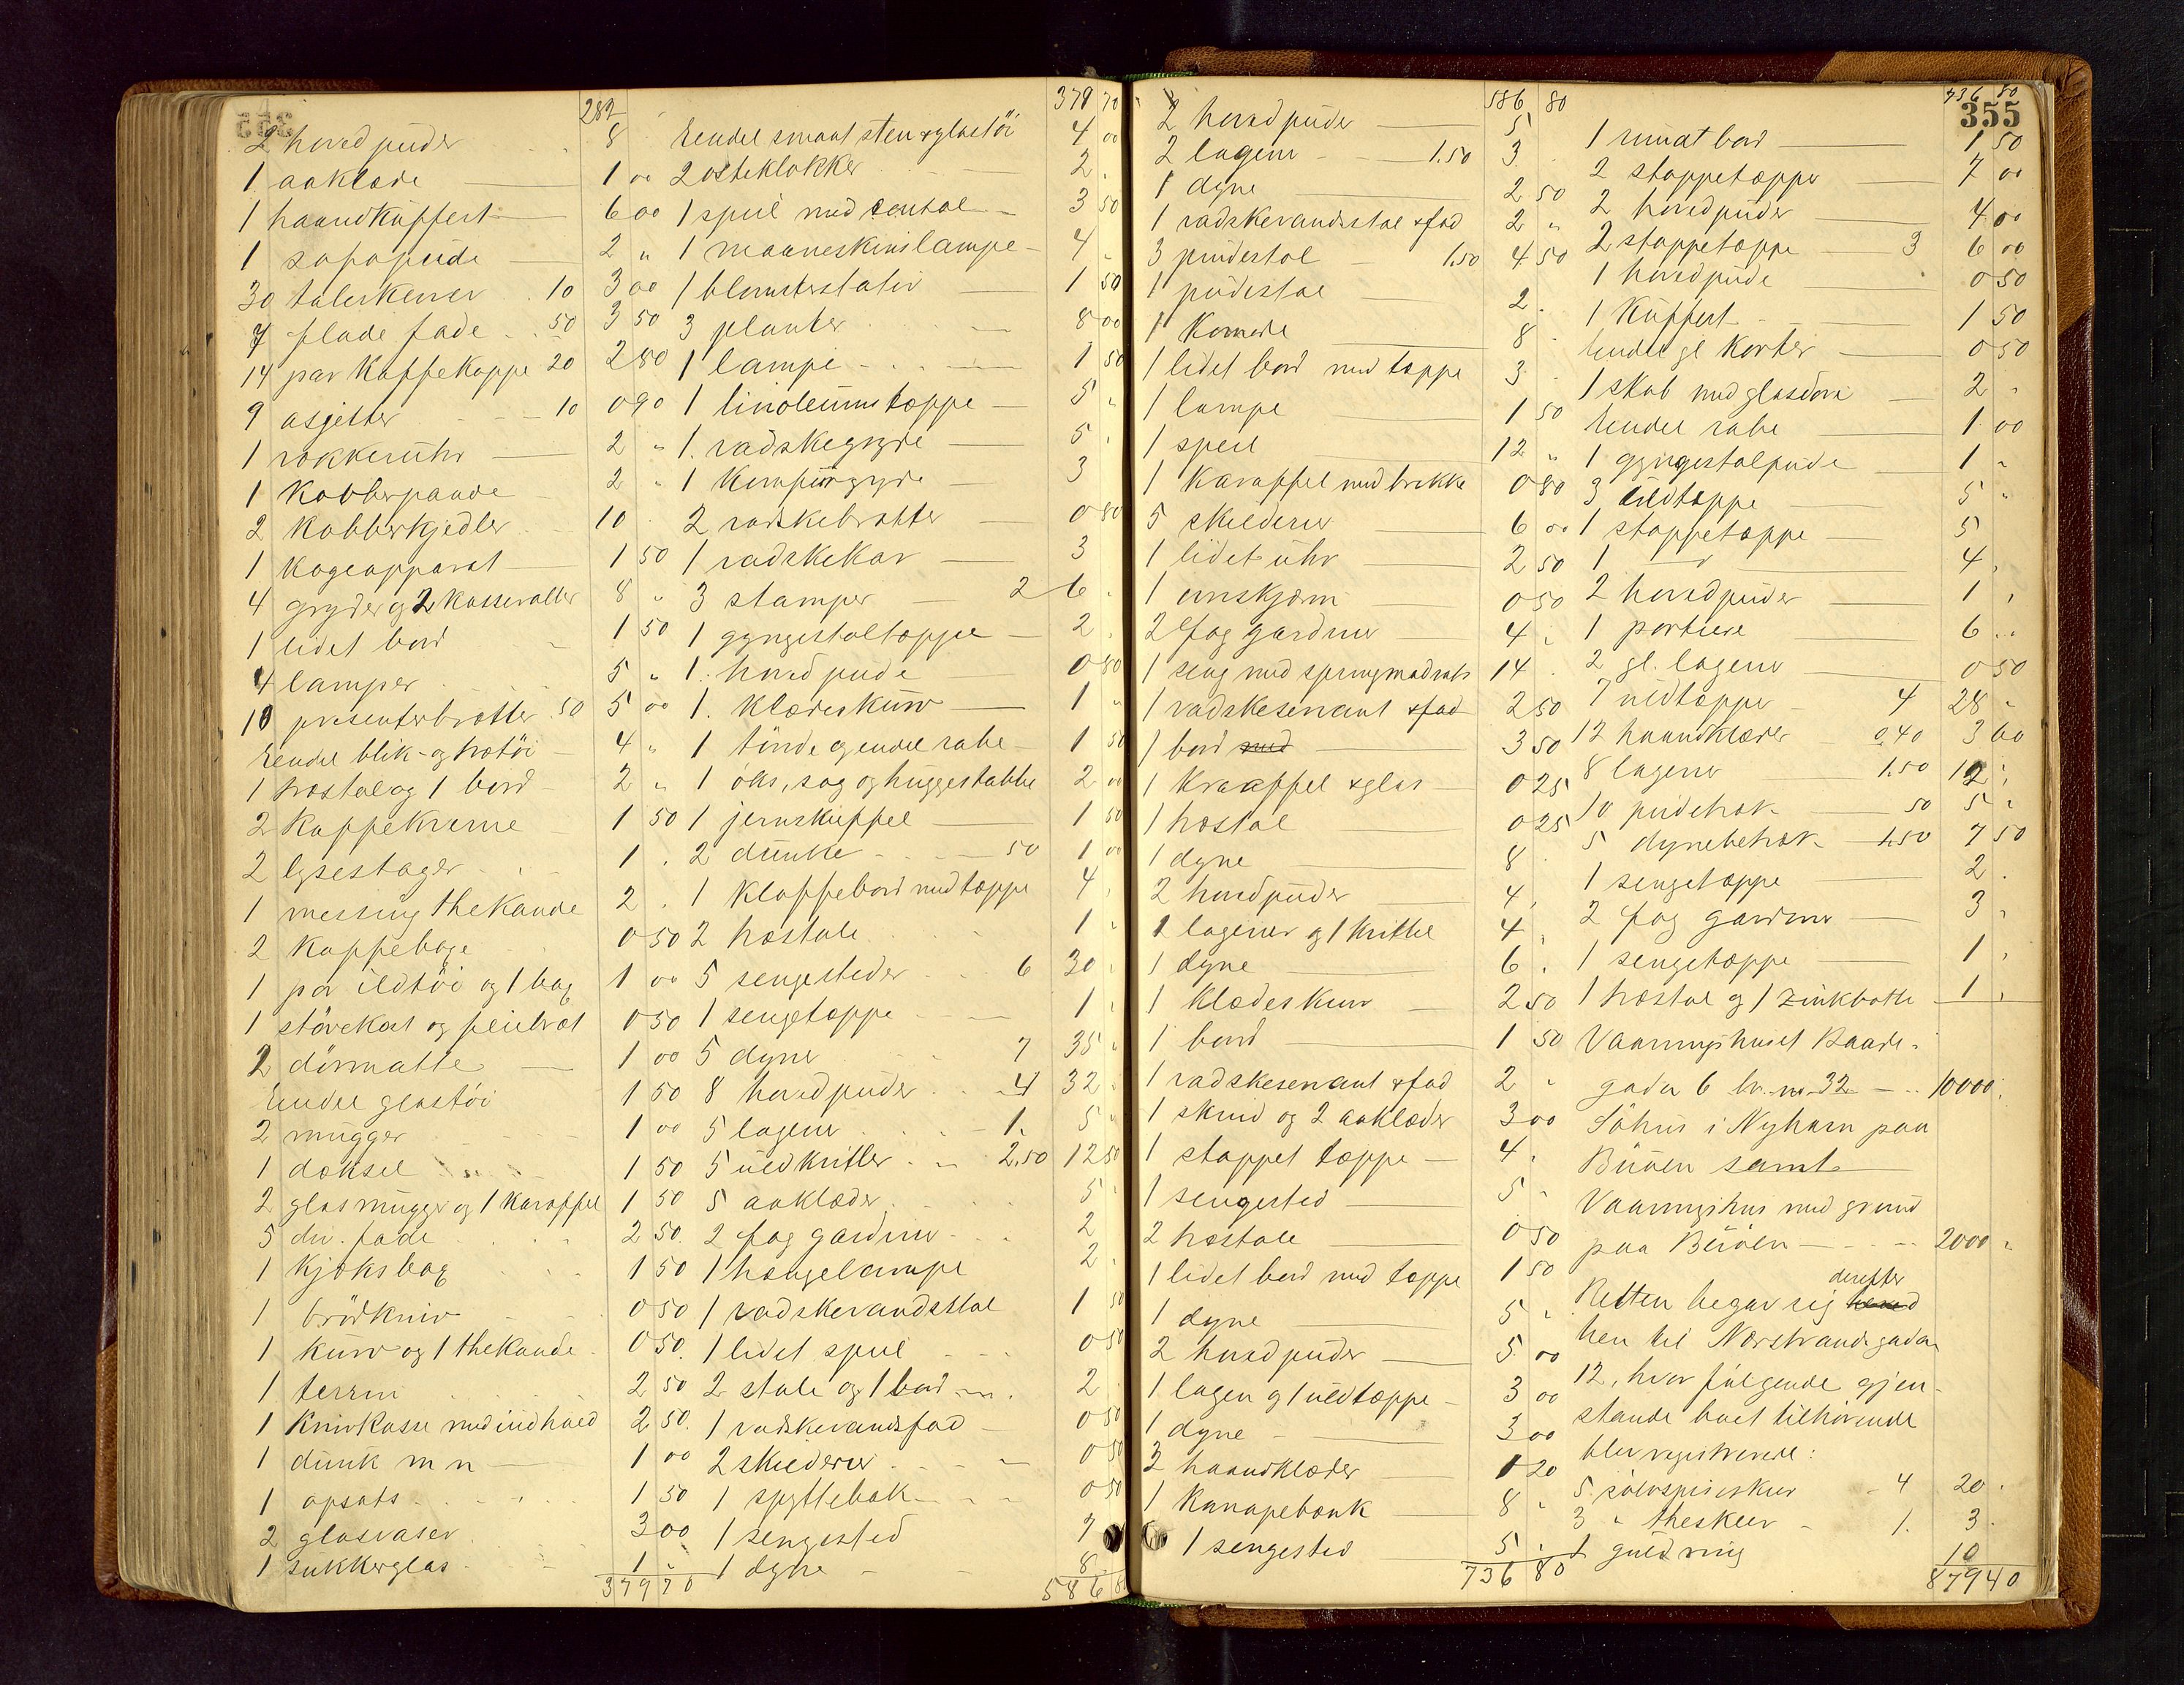 282
2 hovedpuder 8
1 aaklæde 1 00
1 haandkuffert 6 00
1 sofapude 2 "
30 talerkener 10 3 00
7 flade fade 50 3 50
14 par kaffekoppe 20 2 80
9 asjetter 10 0 90
1 vækkeruhr 2 "
1 kobberpande 2 "
2 kobberkjedler 10
1 kogeapparat 1 50
4 gryder og 2 kasseroller 8 "
1 lidet bord 1 50
4 lamper 5 "
10 presenterbrætter 50 5 00
Endel blik- og trætöi 4 "
1 træstol og 1 bord 2 "
2 kaffekverne 1 50
2 lysestager 1
1 messing thekande 2
2 kappebøge 0 50
1 par ildtöi og 1 bag 1 00
1 stövekost og feiebræt 0 50
2 dörmatte 1 00
Endel glastöi 1 50
2 mugger 1 00
1 dæksel 1 50
2 glasmugger og 1 karaffel 1 50
5 div. fade 2 50
1 kjöksbag 1 50
1 brödkniv 0 50
1 kurv og 1 thekande 0 50
1 terrin 2 50
1 knivkasse med indhold 2 50
1 dunk m n 1 00
1 opsats 1 50
2 glasvaser 3 00
1 sukkerglas 1 "
379 70
379 70
Endel smaat sten & glastöi 4 00
2 osteklokker 2
1 speil med consol 3 50
1 maaneskinslampe 4 "
1 blomsterstativ 1 50
3 planter 8 00
1 lampe 1 50
1 linoleumstæppe 5 "
1 vadskegryde 5
1 komfurgryde 3
2 vadskebrætter 0 80
1 vadskekar 3
3 stamper 2 6
1 gyngestoltæppe 2
1 hovedpude 0 80
1 klædeskurv 1 "
1 tönde og endel rabe 1 50
1 öks, sag og huggestabbe 2 00
1 jernskuffel 1 50
2 dunke 50 1 00
1 klaffebord med tæppe 4
2 træstole 1 "
5 sengesteder 6 30
1 sengetæppe 1
5 dyner 7 35 "
8 hovedpuder 4 32
5 lagener 1. 5 "
5 uldkvitler 2.50 12 50
5 aaklæder 5
2 fag gardiner 2
1 hængelampe 2
1 vadskevandsstol 1 50
1 lidet speil 0 50
2 stole og 1 bord 2
1 vadskevandsfad 0 50
2 skilderier 0 50
1 spyttebak 0 50
1 sengested 7
1 dyne 8
586 80
586 80
2 hovedpuder 5
2 lagener 1.50 3
1 dyne 2 50
1 vadskevandsstol & fad 2 "
3 pindestol 1.50 4 50
1 pudestol 2
1 Komode 8
1 lidet bord med tæppe 3
1 lampe 1 50
1 speil 12 "
1 karaffel med brikke 0 80
5 skilderier 6 00
1 lidet uhr 2 50
1 ovnskjærm 0 50
2 fag gardiner 4 "
1 seng med springmadrats 14
1 vadskeservant & fad 2 50
1 bord med 3 50
1 karaffel & glas 0 25
1 træstol 0 25
1 dyne 8
2 hovedpuder 4
2 lagener og 1 kvittel 4
1 dyne 6
1 klædeskurv 2 50
1 bord 1 50
1 vadskeservant & fad 2 "
1 skind og 2 aaklæder 3 00
1 stoppet tæppe 4
1 sengested 5 "
2 træstole 0 50
1 lidet bord med tæppe 1 50
1 dyne 5 "
2 hovedpuder 5 00
1 lagen og 1 uldtæppe 3 00
1 dyne 3 00
3 haandklæder 1 20
1 kanapebænk 8 "
1 sengested 5
736 80
736 80
355
1 rundt bord 1 50
2 stoppetæpper 7 00
2 hovedpuder 4 00
2 stoppetæppe 3 6 00
1 hovedpude 0 50
1 kuffert 1 50
Endel gl karter 0 50
1 skab med glasdöre 2 "
Endel rabe 1 00
1 gyngestolpude 1 "
3 uldtæppe 5 "
1 stoppetæppe 5
1 — " — 4
2 hovedpuder 1
1 portiere 6 "
2 gl. lagener 0 50
7 uldtæpper 4 28 "
12 haandklæder 0.40 3 60
8 lagener 1.50 12
10 pudetræk 50 5 "
5 dynebetræk 1.50 7 50
1 sengetæppe 2
2 fag gardiner 3
1 sengetæppe 1
1 træstol og 1 zinkbötte 1
Vaaningshuset Baade-
gaden 6 br. nr. 32 10000
Söhus i Nyhavn paa
Buöen samt
Vaaningshus med grund
paa Buöen 2000
derefter
Retten begav sig
hen til Nordstrandsgaden
12, hvor fölgende gjen-
stande boet tilhörende
blev registrerede:
5 sölvspiseskeer 4 20
3 " theskeer 1. 3
1 guldring 10
879 40